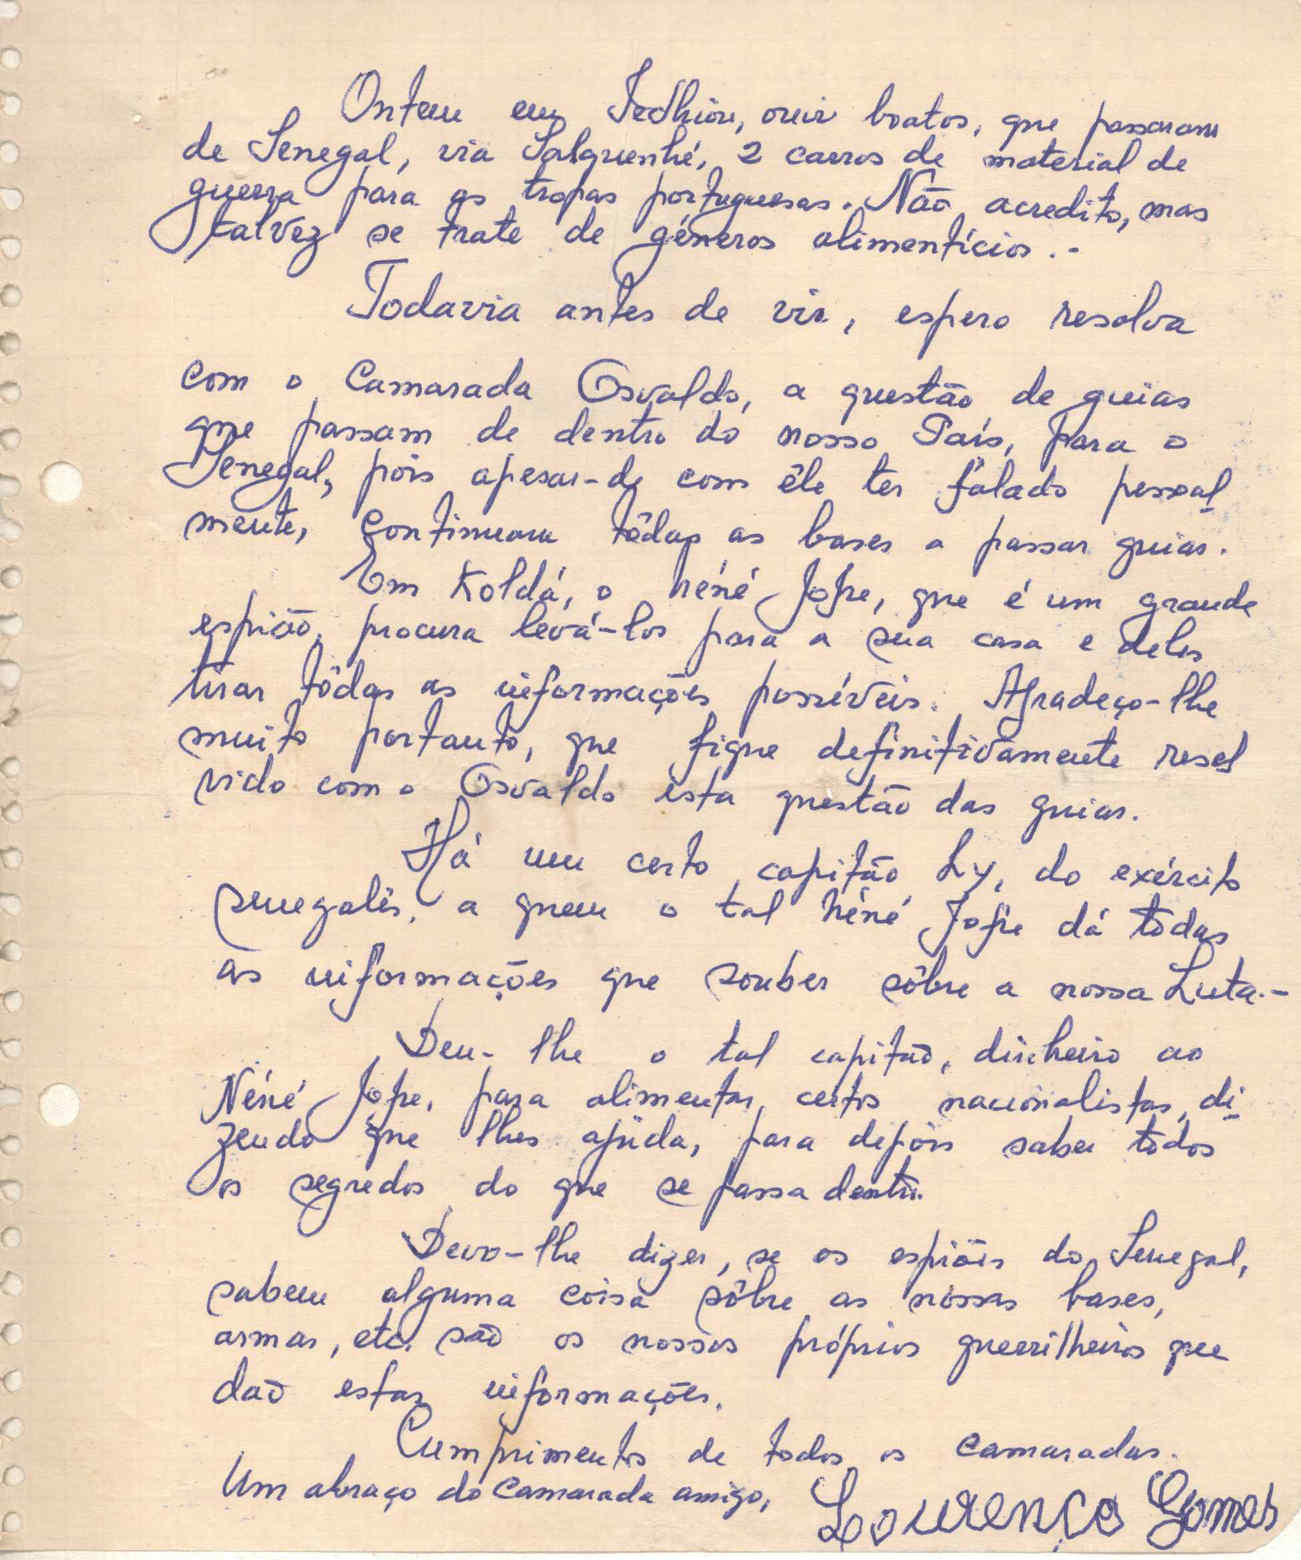 Ontem em Sedhiou, ouvir boatos, que passaram
de Senegal, via Salquenhé, 2 carros de material de
guerra para as tropas portuguesas. Não acredito, mas
talvez se trate de géneros alimentícios.-
Todavia antes de vir, espero resolva
com o Camarada Osvaldo, a questão de guias
que passam de dentro do nosso País, para o
Senegal, pois apesar-de com êle ter falado pessoal-
mente, continuam tôdas as bases a passar guias.
Em Koldá, o Néné Jofre, que é um grande
espião, procura levá-los para a sua casa e deles
tirar tôdas as informações possíveis. Agradeço-lhe
muito portanto, que fique definitivamente resol
vido com o Osvaldo esta questão das guias.
Há um certo capitão Ly, do exército
senegalês, a quem o tal Néné Jofre dá todas
as informações que souber sôbre a nossa Luta.-
Deu-lhe o tal capitão, dinheiro ao
Néné Jofre, para alimentar certos nacionalistas, di-
zendo que lhes ajuda, para depois saber todos
os segredos do que se passa dentro.
Devo-lhe dizer, se os espiões do Senegal,
sabem alguma coisa sôbre as nossas bases,
armas, etc. são os nossos próprios guerrilheiros que
dão estas informações.
Cumprimentos de todos os camaradas.
Um abraço do camarada amigo,
Lourenço Gomes